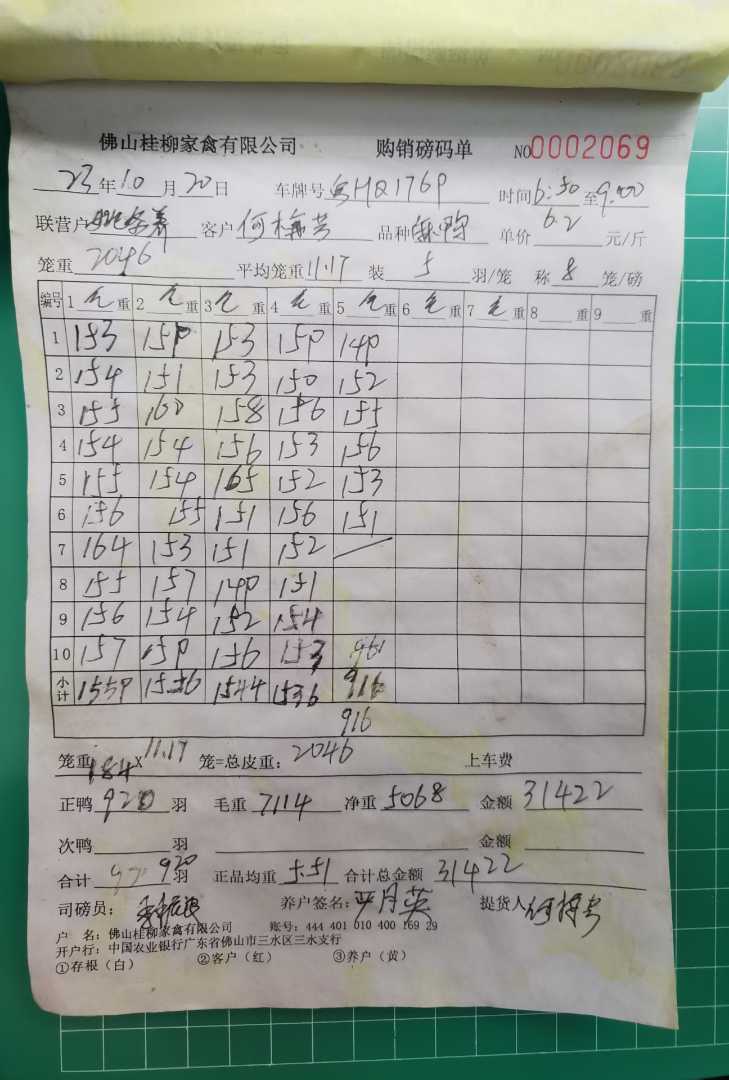 佛山桂柳家禽有限公司 购销磅码单 NO0002069
23年10月20日 车牌号粤HQ1769 时间6:50至9:00
联营户 客户何梅芳 品种麻鸭 单价6.2元/斤
笼重2046 平均笼重11.17 装5羽/笼 称8笼/磅
编号 1 毛重 2 毛重 3 毛重 4 毛重 5 毛重 6 毛重 7 毛重 8 重 9 重
1 153 159 153 159 149
2 154 151 153 150 152
3 155 160 158 156 155
4 154 154 156 153 156
5 155 154 165 152 153
6 156 155 151 156 151
7 164 153 151 152
8 155 157 149 151
9 156 154 152 154
10 157 159 156 153 961
小计 1559 1556 1544 1536 916
916
笼重184×11.17 笼=总皮重:2046 上车费
正鸭920羽 毛重7114 净重5068 金额31422
次鸭 羽 金额
合计920羽 正品均重5.51 合计总金额31422
司磅员: 养户签名:严月英 提货人何梅芳
户 名:佛山桂柳家禽有限公司 账号:444 401 010 400 169 29
开户行:中国农业银行广东省佛山市三水区三水支行
①存根(白) ②客户(红) ③养户(黄)